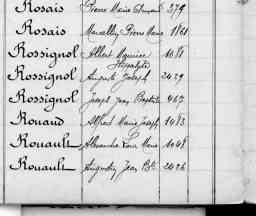 Rosais Pierre Marie 279
Rosais Marcellin Pierre Marie
Rossignol Albert Maurice Hippolyte 1088
Rossignol Auguste Joseph 2429
Rossignol Joseph Jean Baptiste 467
Rouaud Alfred Marie Joseph 1483
Rouault Alexandre Marie 1048
Rouault Jean Bte 2426